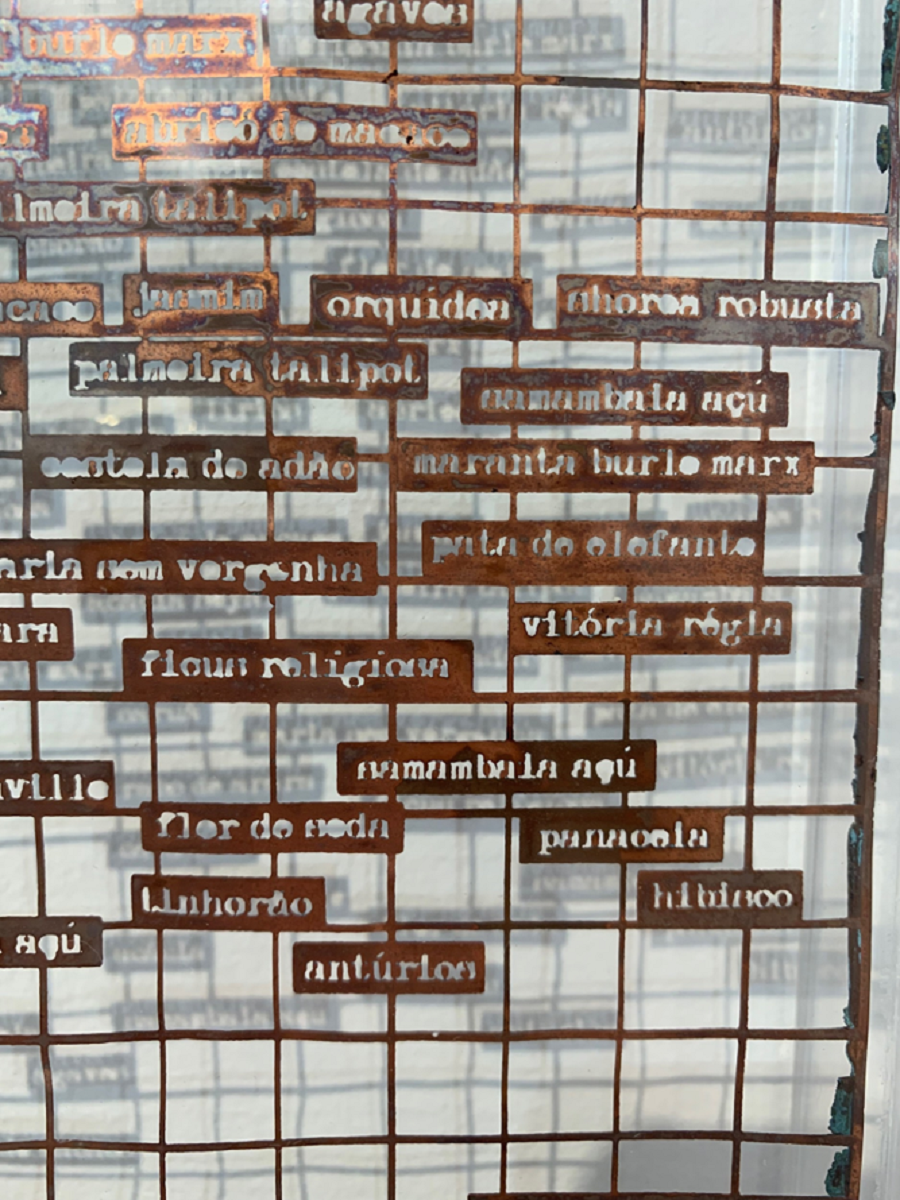 agaves
burle marx
abricó de macaco
talipot
jasmim orquídea shorea robusta
palmeira talipot
samambaia açú
costela de adão maranta burle marx
pata de elefante
sem vergonha
vitória régia
ficus religiosa
samambaia açú
ville
flor de seda panaceia
tinhorão hibisco
açú
antúrios